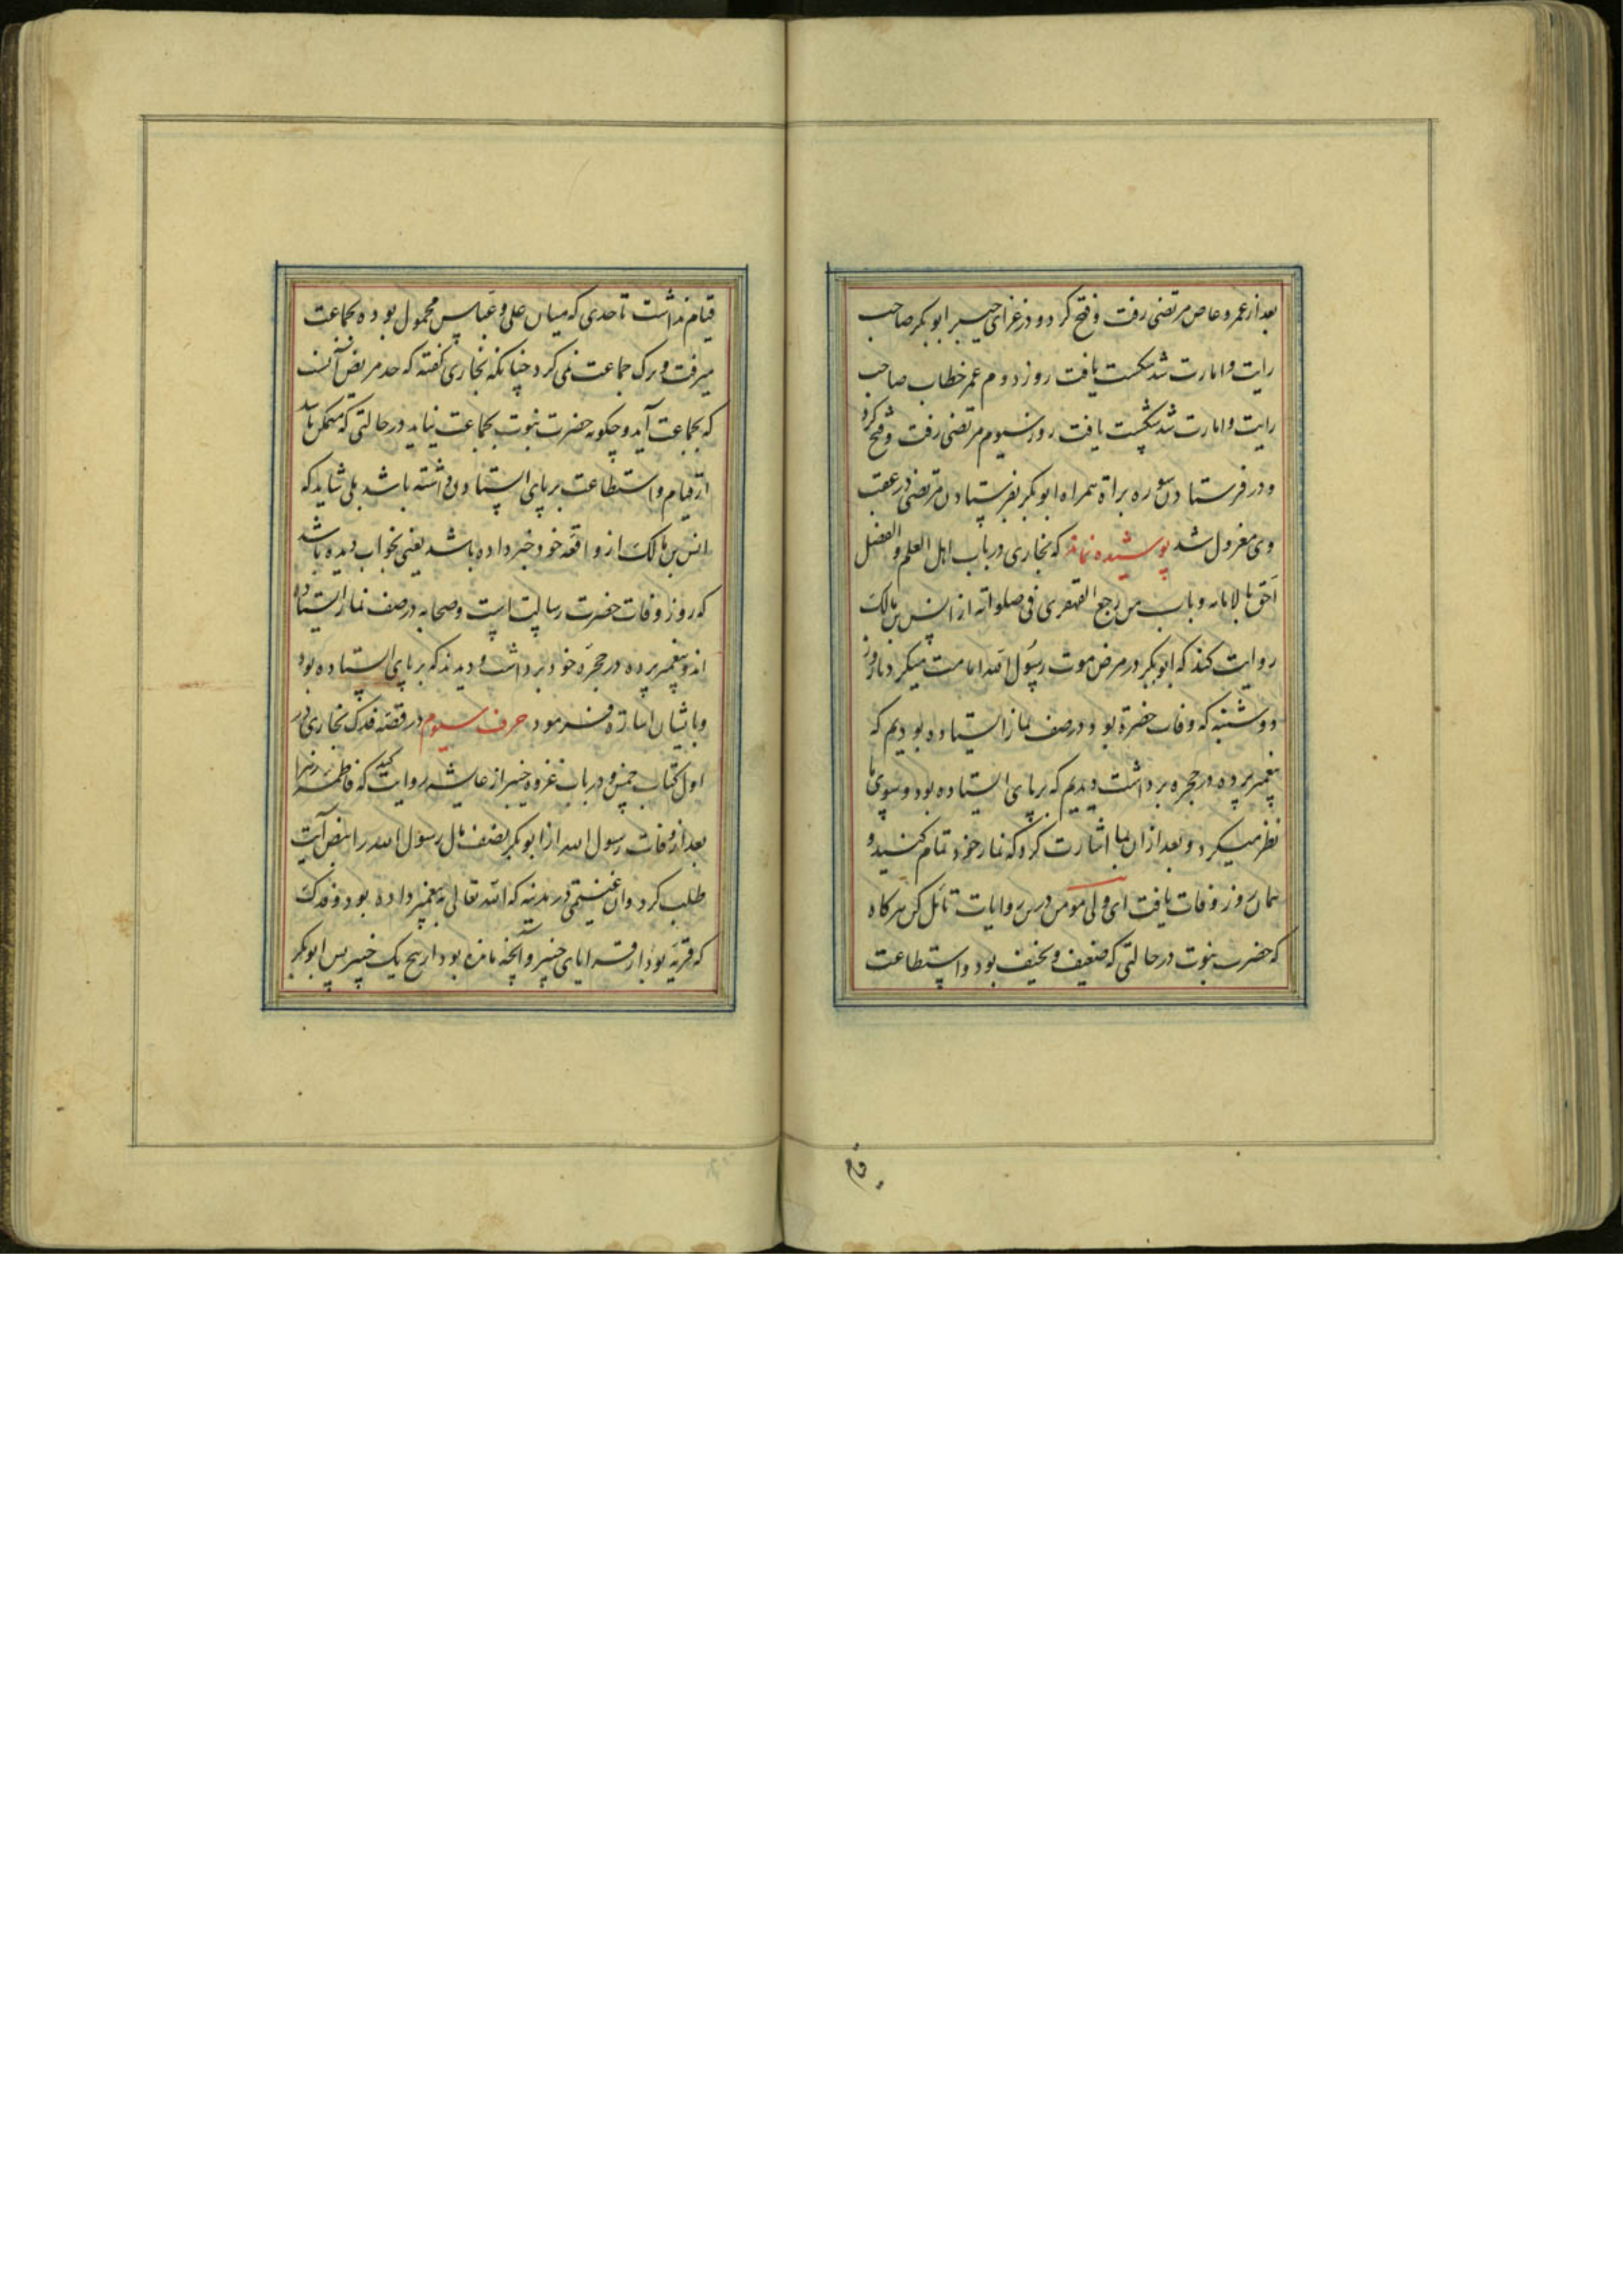 بعد از عمرو عاص مرتضی رفت و فتح کرد و در غزای خیبر ابو بکر صاحب
رایت و امارت شد شکست یافت روز دوم عمر خطاب صاحب
رایت و امارت شد شکست یافت روز سیوم مرتضی رفت و فتح کرد
و در فرستادن سوره براة همراه ابو بکر بفرستادن مرتضی در عقب
وی معزول شد پوشیده نماند که بخاری در باب اهل العلم و الفضل
احق بالامامه و باب من رجع القهقری فی صلواته از انس بن مالک
روایت کند که ابو بکر در مرض موت رسول الله امامت میکرد تا روز
دوشنبه که وفات حضرة بود در صف نماز ایستاده بودیم که
پیغمبر پرده در حجره برداشت دیدیم که بر پای ایستاده بود و بسوی ما
نظر میکرد و بعد از ان بما اشارت کرد که نماز خود تمام کنید و
همان روز وفات یافت ای ولی مومن درین روایات تامل کن هرکاه
که حضرت نبوت در حالتی که ضعیف و نحیف بود و استطاعت
قیام نداشت تا حدی که میان علی و عباس محمول بوده بجماعت
میرفت و ترک جماعت نمی کرد چنانکه بخاری کفته که حد مریض آنست
که بجماعت آید و چکونه حضرت نبوت بجماعت نیاید در حالتی که ممکن باشد
از قیام و استطاعت بر پای ایستادن داشته باشد بلی شاید که
انس بن مالک از واقعه خود خبر داده باشد یعنی بخواب دیده باشد
که روز وفات حضرت رسالت است و صحابه در صف نماز ایستاده
اند و پیغمبر پرده در حجره خود برداشت و دیدند که بر پای ایستاده بود
و با شیان اشارة فرمود حرف سیوم در قصه فدک بخاری در
اول کتاب خمس و در باب غزوه خیبر از عایشه روایت کند که فاطمه زهرا
بعد از وفات رسول الله از ابو بکر نصف مال رسول الله را بنص آیت
طلب کرد و ان غنیمتی در مدینه که الله تعالی به پیغمبر داده بود و فدک
که قریه بود از قرایای خیبر و آنچه مانده بود از پنج یک خیبر پس ابو بکر